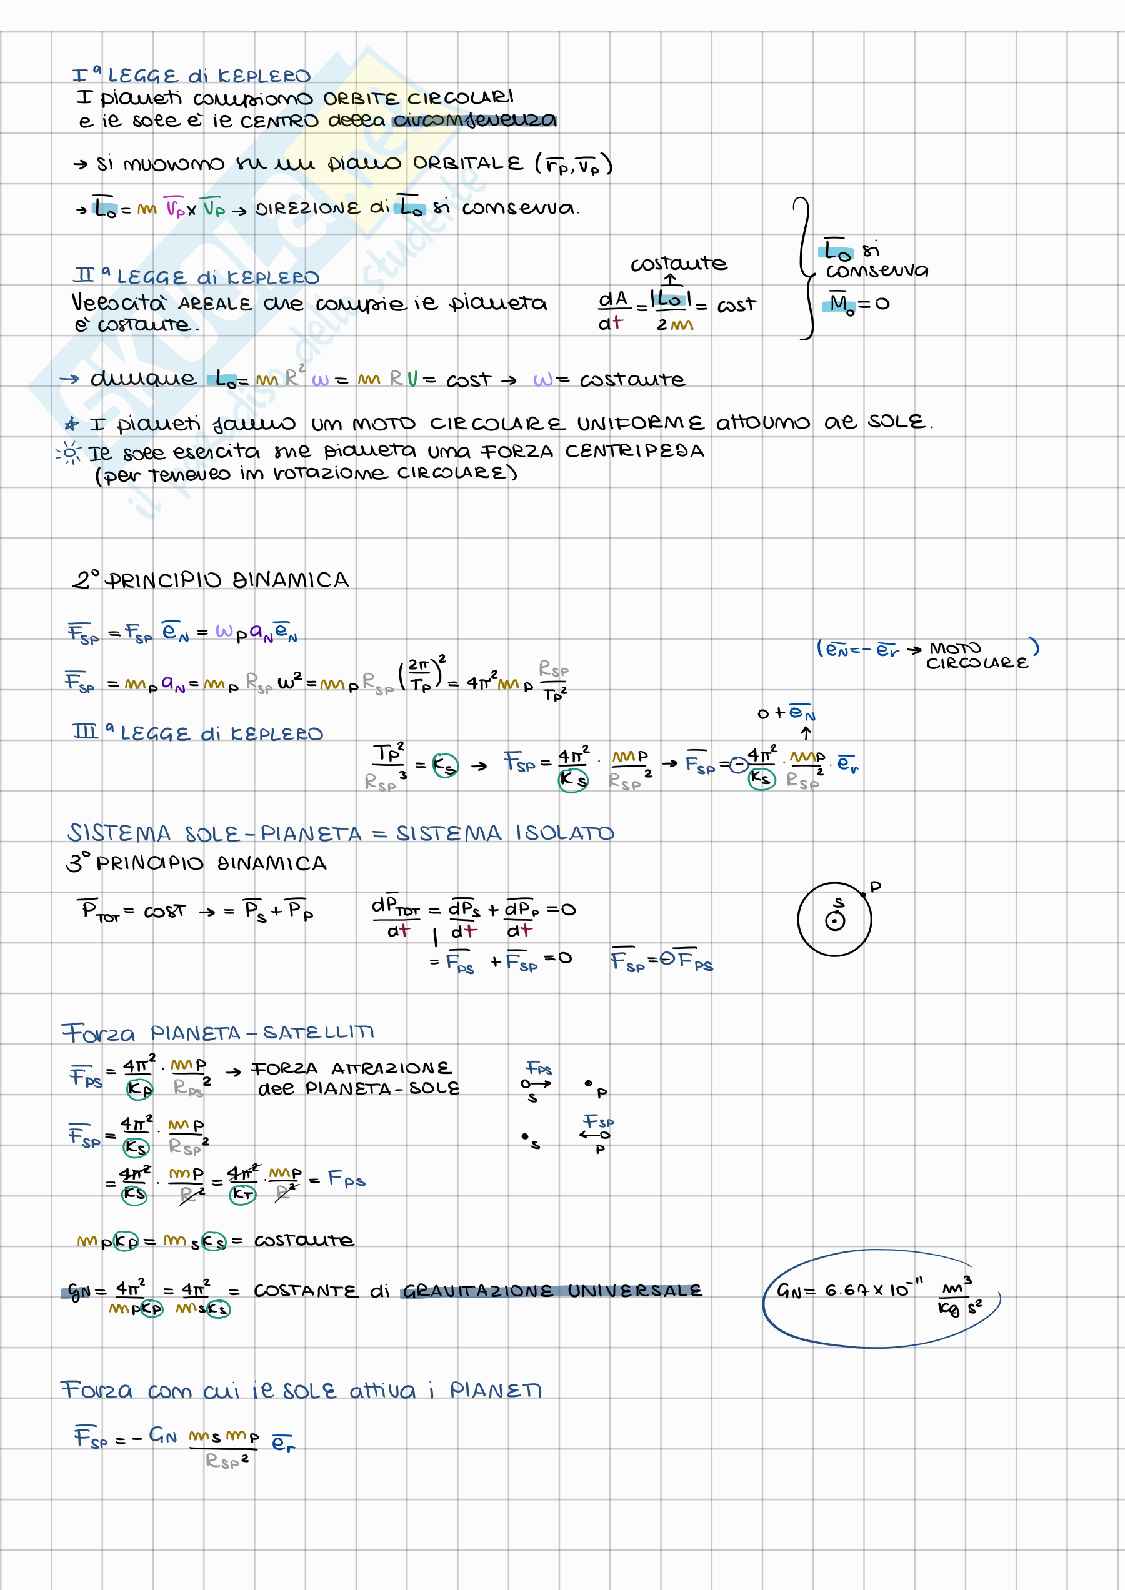 Iª LEGGE di KEPLERO
I pianeti compiono ORBITE CIRCOLARI
e il sole è il CENTRO della circonferenza
→ si muovono su un piano ORBITALE (r̅p, v̅p)
→ L̅o = m r̅p × v̅p → DIREZIONE di L̅o si conserva.
L̅o si
conserva
M̅o = 0
costante
↑
IIª LEGGE di KEPLERO
Velocità AREALE che compie il pianeta
è costante.
dA/dt = |L̅o|/2m = cost
→ dunque Lo = m R² ω = m R v = cost → ω = costante
* I pianeti fanno un MOTO CIRCOLARE UNIFORME attorno al SOLE.
Il sole esercita sul pianeta una FORZA CENTRIPEDA
(per tenerlo in rotazione CIRCOLARE)
2° PRINCIPIO DINAMICA
F̅sp = Fsp e̅N = ωp aN e̅N
(e̅N = - e̅r → MOTO
CIRCOLARE)
F̅sp = mp aN = mp Rsp ω² = mp Rsp (2π/Tp)² = 4π² mp Rsp/Tp²
0 + e̅N
↑
IIIª LEGGE di KEPLERO
Tp²/Rsp³ = Ks → F̅sp = 4π²/Ks · mp/Rsp² → F̅sp = - 4π²/Ks · mp/Rsp² · e̅r
SISTEMA SOLE-PIANETA = SISTEMA ISOLATO
3° PRINCIPIO DINAMICA
P̅TOT = COST → = P̅s + P̅p
dP̅TOT/dt = dP̅s/dt + dP̅p/dt = 0
= F̅ps + F̅sp = 0
F̅sp = - F̅ps
P
S
Forza PIANETA-SATELLITI
F̅ps = 4π²/Kp · mp/Rps² → FORZA ATTRAZIONE
del PIANETA-SOLE
Fps
s
p
F̅sp = 4π²/Ks · mp/Rsp²
Fsp
s
p
= 4π²/Ks · mp/R² = 4π²/KT · mp/R² = Fps
mp Kp = ms Ks = costante
GN = 4π²/mpKp = 4π²/msKs = COSTANTE di GRAVITAZIONE UNIVERSALE
GN = 6.67 × 10⁻¹¹ m³/kg s²
Forza con cui il SOLE attiva i PIANETI
F̅sp = - GN ms mp/Rsp² e̅r